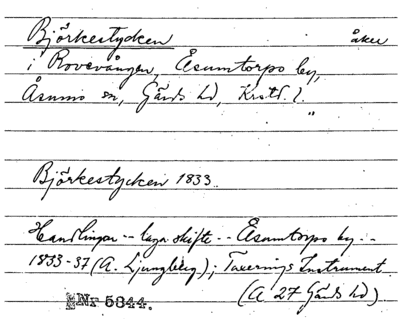 Björkestycken åker
i Rovevången, Åsumtorps by,
Åsums sn, Gärds hd, Krstd. l.
"
Björkestycken 1833
Handlingar -- laga skifte -- Åsumtorps by --
1833-37 (A. Ljungberg); Taxerings Instrument
(A 27 Gärds hd)
Nr 5844.